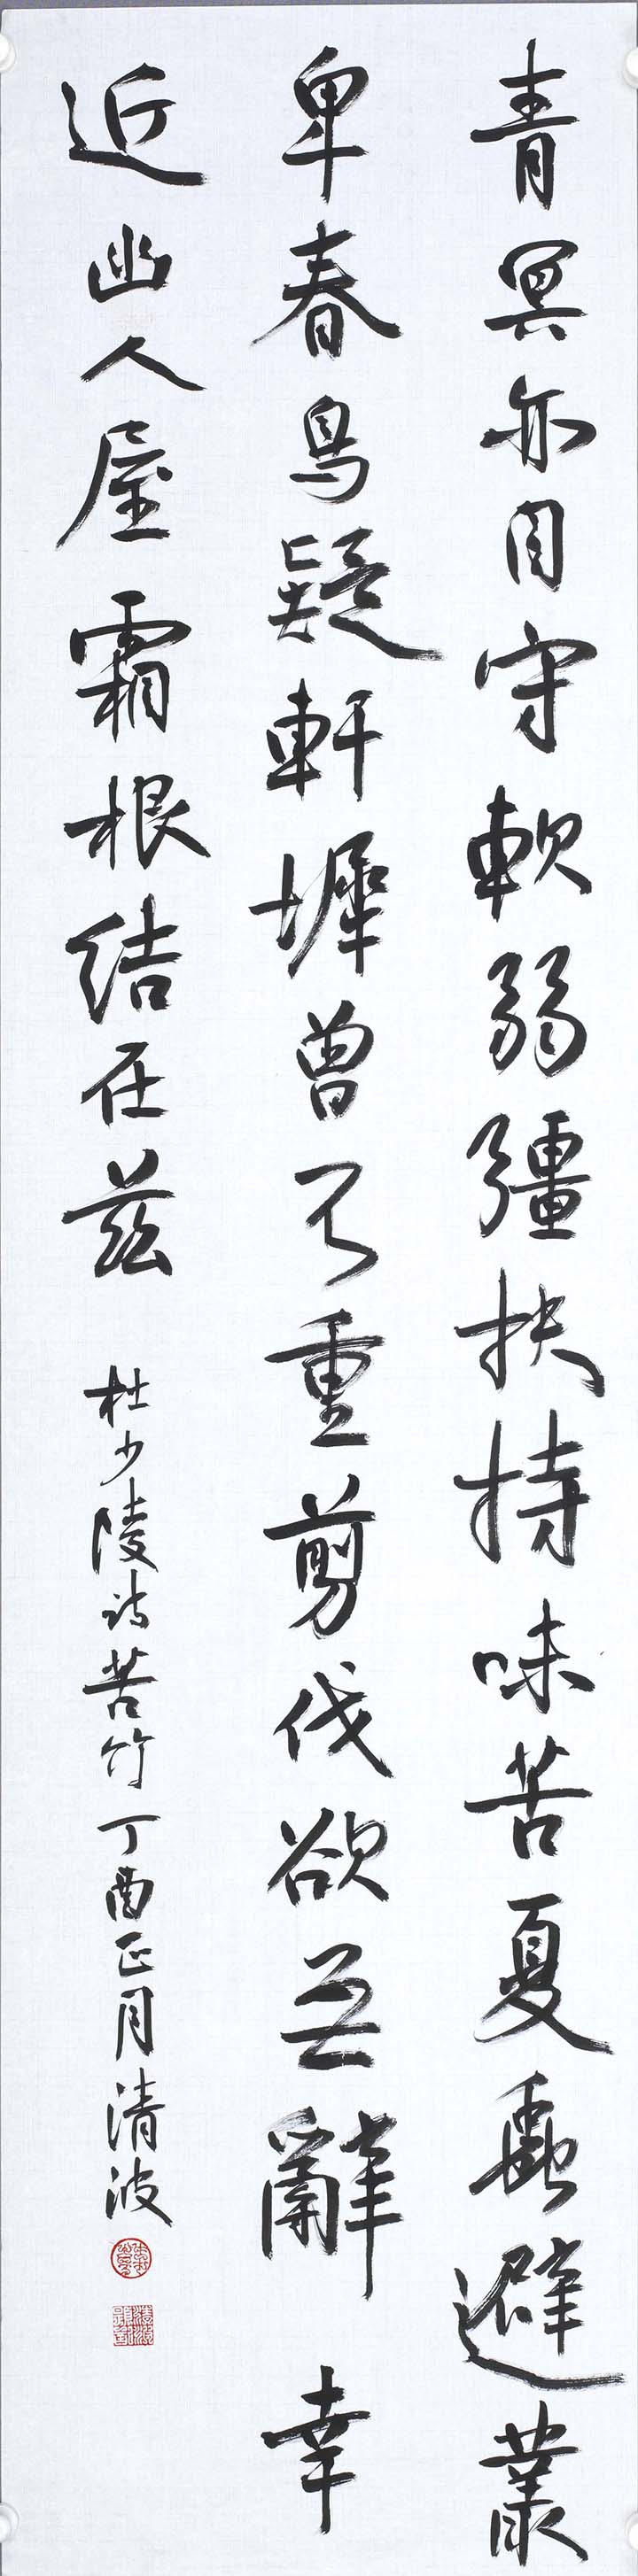 青冥亦自守軟弱彊扶持味苦夏蟲避叢
卑春鳥疑軒墀曾不重剪伐欲無辭幸
近幽人屋霜根結在茲 杜少陵詩苦竹丁酉正月清波